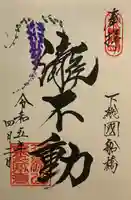 奉拝
下総國船橋
瀧不動
令和五年
四月十一日